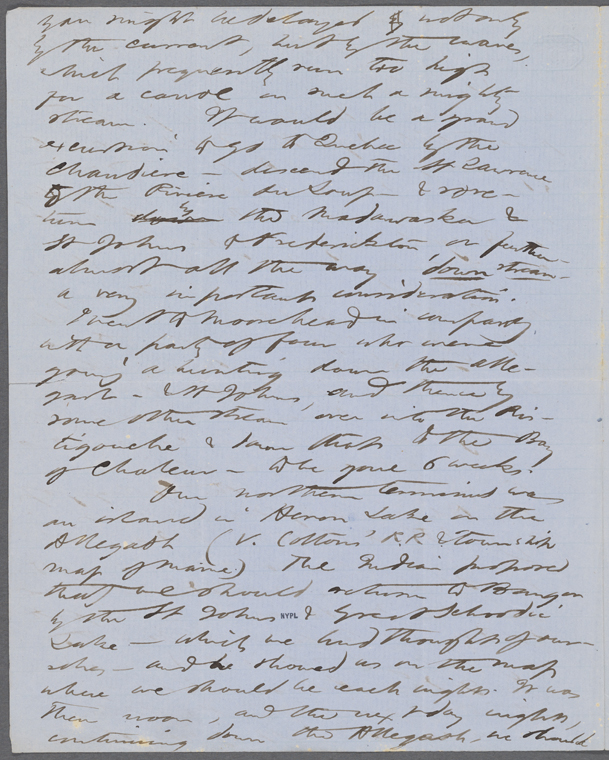 you might be delayed not only
by the current, but by the waves,
which frequently run too high
for a canoe on such a mighty
stream. It would be a grand
excursion to go to Quebec by the
Chaudiere — descend the St Lawrence
to the Riviere du Loup — & re-
turn by the Madawaska &
St Johns to Frederickton, or further
almost all the way down stream—
a very important consideration.
I went to Moosehead in company
with a party of four who were
going a hunting down the Alle-
gash — & St Johns, and thence by
some other stream over into the Ris-
tigouche & down that to the Bay
of Chaleur — to be gone 6 weeks.
Our northern terminus was
an island in Heron Lake on the
Allegash (V. Coltons' R.R & township
map of Maine) The Indian proposed
that we should return to Bangor
by the St Johns & Great Schoodic
NYPL
Lake — which we had thought of our-
selves — and he showed us on the map
where we should be each night. It was
then noon, and the next day night,
continuing down the Allegash, we should